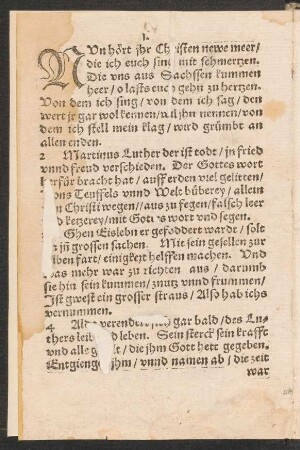 1.
NVn hört jhr Christen newe meer/
die ich euch sing mit schmertzen.
Die vns aus Sachssen kummen
heer / o lasts euch gehn zu hertzen.
Von dem ich sing / von dem ich sag / den
wert jr gar wol kennen / nennen / von
dem ich stell mein klag / wird grümbt an
allen enden.
2 Martinus Luther der ist todt / in fried
vnnd freud verschieden. Der Gottes wort
herfür bracht hat / auff erden viel gelitten /
Teuffels vnnd Welt büberey / allein
Christi wegen / aus zu fegen / falsch leer
vnd ketzerey / mit Gottes wort vnd segen.
Ghen Eislebn er gefoddert wardt / solt
grossen sachen. Mit sein gesellen zur
selben fart / einigkeyt helffen machen. Vnd
was mehr war zu richten aus / darumb
sie hin sein kummen / znutz vnnd frummen /
Ist gwest ein grosser straus / Also hab ichs
vernummen.
4 gar bald / des Lu-
thers leben. Sein sterck sein krafft
vnd alle / die jhm Gott hett gegeben.
Entgienge jhm / vnnd namen ab / die zeit
war